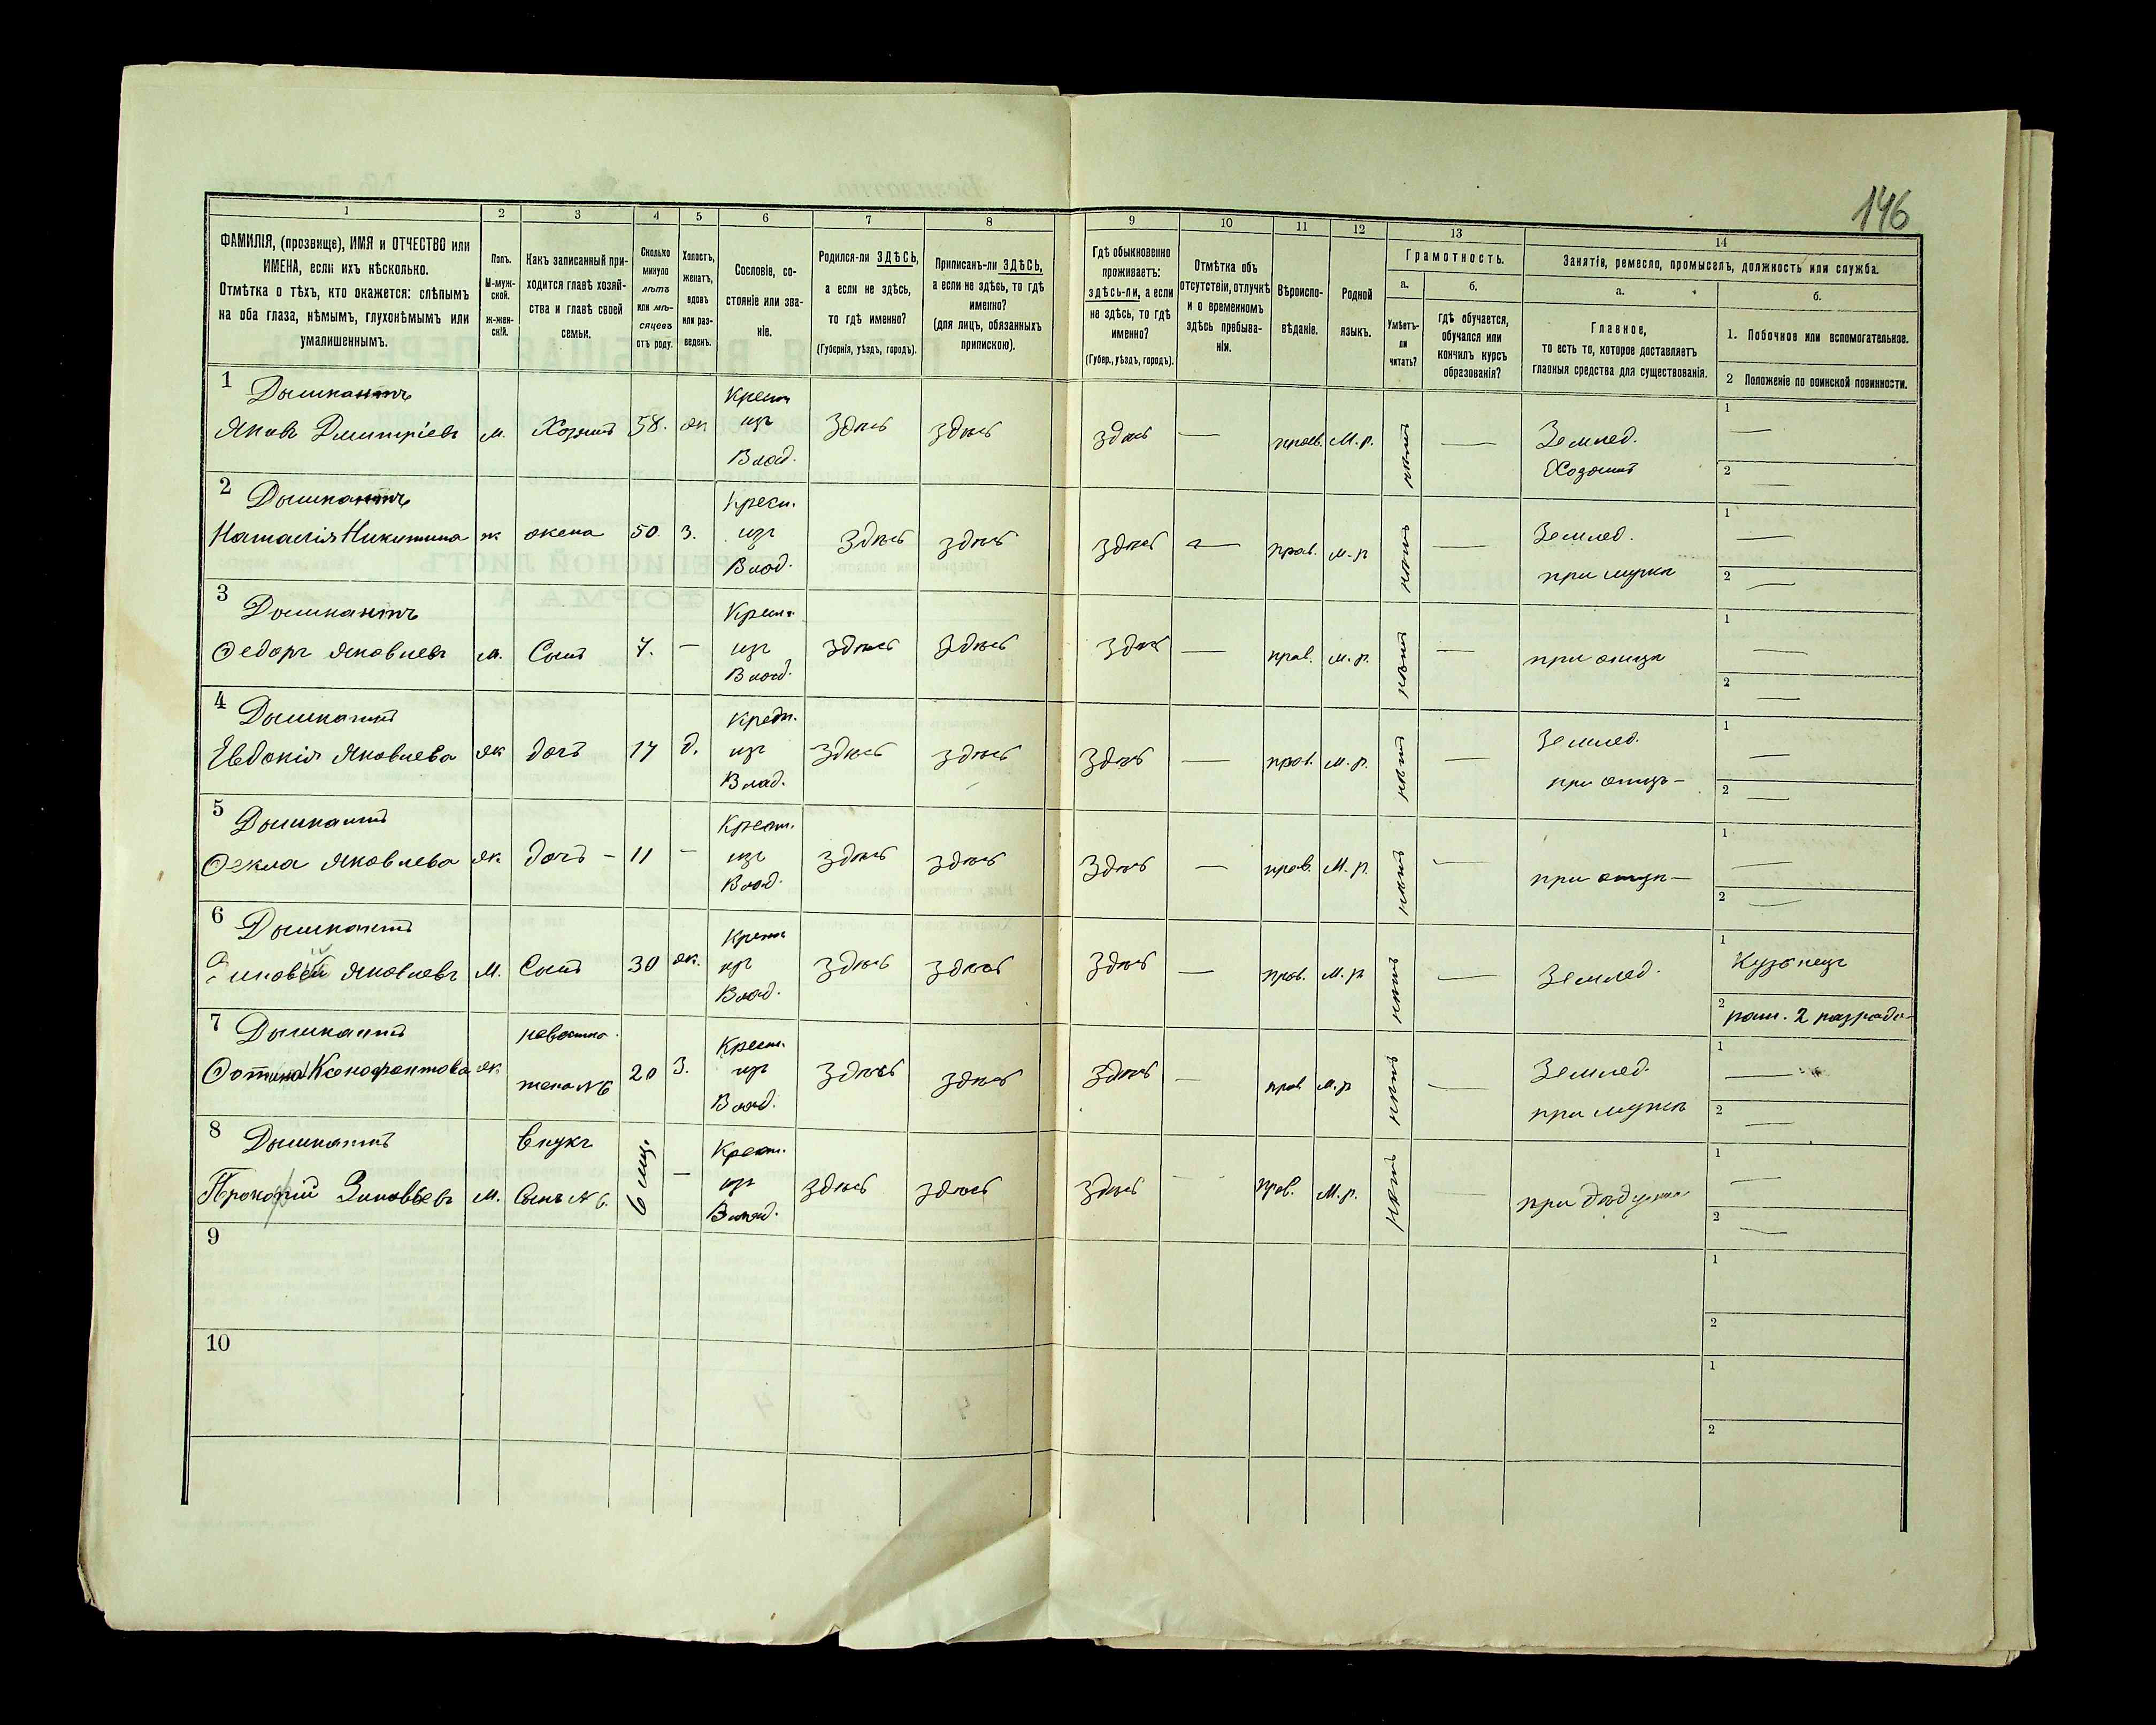 146
1 2 3 4 5 6 7 8 9 10 11 12 13 14
ФАМИЛІЯ, (прозвище), ИМЯ и ОТЧЕСТВО или
ИМЕНА, если ихъ нѣсколько.
Отмѣтка о тѣхъ, кто окажется: слѣпымъ
на оба глаза, нѣмымъ, глухонѣмымъ или
умалишеннымъ.
Полъ.
М-муж-
ской.
ж-жен-
скій.
Какъ записанный при-
ходится главѣ хозяй-
ства и главѣ своей
семьи.
Сколько
минуло
лѣтъ
или мѣ-
сяцевъ
отъ роду.
Холостъ,
женатъ,
вдовъ
или раз-
веденъ.
Сословіе, со-
стояніе или зва-
ніе.
Родился-ли ЗДѢСЬ,
а если не здѣсь,
то гдѣ именно?
(Губернія, уѣздъ, городъ).
Приписанъ-ли ЗДѢСЬ,
а если не здѣсь, то гдѣ
именно?
(для лицъ, обязанныхъ
припискою).
Гдѣ обыкновенно
проживаетъ:
здѣсь-ли, а если
не здѣсь, то гдѣ
именно?
(Губер., уѣздъ, городъ).
Отмѣтка объ
отсутствіи, отлучкѣ
и о временномъ
здѣсь пребыва-
ніи.
Вѣроиспо-
вѣданіе.
Родной
языкъ.
Грамотность.
а.
Умѣетъ-
ли
читать?
б.
гдѣ обучается,
обучался или
кончилъ курсъ
образованія?
Занятія, ремесло, промыселъ, должность или служба.
а.
Главное,
то есть то, которое доставляетъ
главныя средства для существованія.
б.
1. Побочное или вспомогательное.
2 Положеніе по воинской повинности.
1 Дышкантъ Крест.
Яковъ Дмитріевъ м. Хозяинъ 58. ж изъ здѣсь здѣсь здѣсь — прав. М.р. нѣтъ — Землед. 1 —
Влад. Хозяинъ 2 —
2 Дышкантъ Крест.
Наталія Никитина ж жена 50. З. изъ здѣсь здѣсь здѣсь — прав. м.р нѣтъ — Землед. 1 —
Влад. при мужѣ 2 —
3 Дышкантъ Крест.
Ѳедоръ Яковлевъ м. Сынъ 7. — изъ здѣсь здѣсь здѣсь — прав. м.р. нѣтъ — при отцѣ 1 —
Влад. 2 —
4 Дышкантъ Крест.
Евдокія Яковлева ж дочь 17 д. изъ здѣсь здѣсь здѣсь — прав. м.р. нѣтъ — Землед. 1 —
Влад. при отцѣ — 2 —
5 Дышкантъ Крест.
Ѳекла Яковлева ж дочь — 11 — изъ здѣсь здѣсь здѣсь — прав. М.р. нѣтъ — при отцѣ — 1 —
Влад. 2 —
6 Дышкантъ Крест.
Яковлевъ М. Сынъ 30 ж. изъ здѣсь здѣсь здѣсь — прав. м.р нѣтъ — Землед. 1 Кузнецъ
Влад. 2 рат. 2 разряда
7 Дышкантъ невѣстка Крест.
Ксенофонтова ж жена №6 20 З. изъ здѣсь здѣсь здѣсь — прав м.р нѣтъ — Землед. 1 —
Влад. при мужѣ 2 —
8 Дышкантъ внукъ Крест.
Прокофій Зиновьевъ м. Сынъ №6. 6 мц. — изъ здѣсь здѣсь здѣсь — прав. М.р. нѣтъ — при дѣдушкѣ 1 —
Влад. 2 —
9 1
2
10 1
2